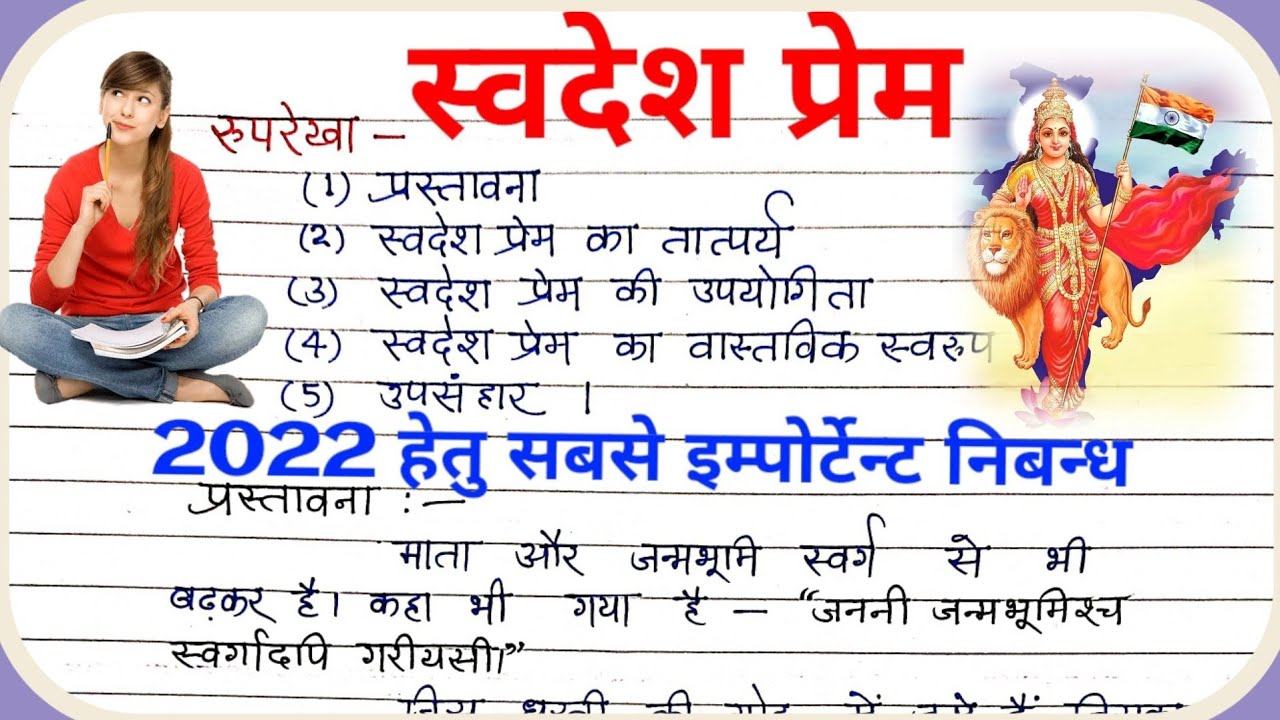 स्वदेश प्रेम
रुपरेखा –
(1) प्रस्तावना
(2) स्वदेश प्रेम का तात्पर्य
(3) स्वदेश प्रेम की उपयोगिता
(4) स्वदेश प्रेम का वास्तविक स्वरुप
(5) उपसंहार ।
2022 हेतु सबसे इम्पोर्टेन्ट निबन्ध
प्रस्तावना :–
माता और जन्मभूमि स्वर्ग से भी
बढ़कर है। कहा भी गया है – “जननी जन्मभूमिश्च
स्वर्गादपि गरीयसी।”
की में